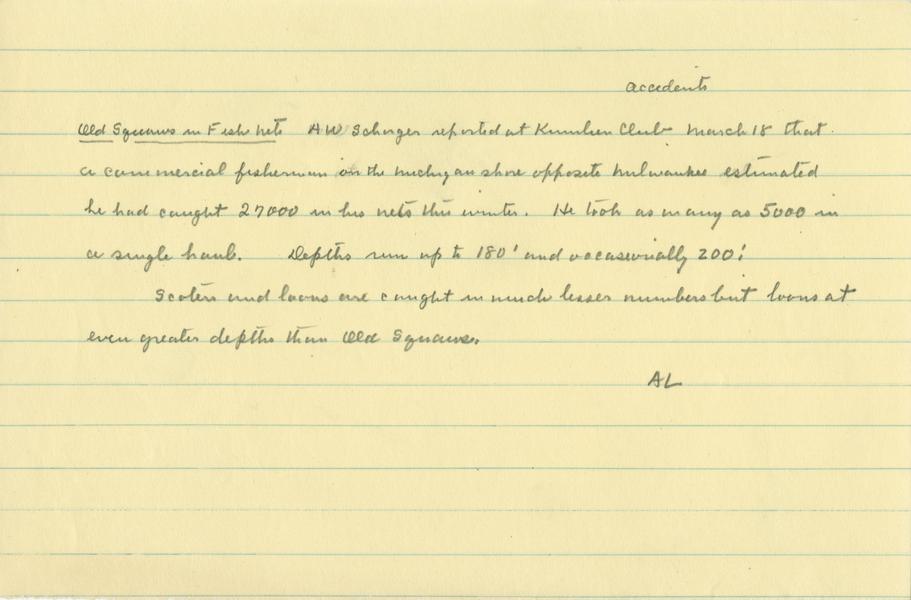 accidents
Old Squaws in Fish Nets AW Schorger reported at Kumlien Club March 18 that
a commercial fisherman on the Michigan shore opposite Milwaukee estimated
he had caught 27000 in his nets this winter. He took as many as 5000 in
a single haul. Depths run up to 180' and occasionally 200'.
Scoters and loons are caught in much lesser numbers but loons at
even greater depths than Old Squaws.
AL